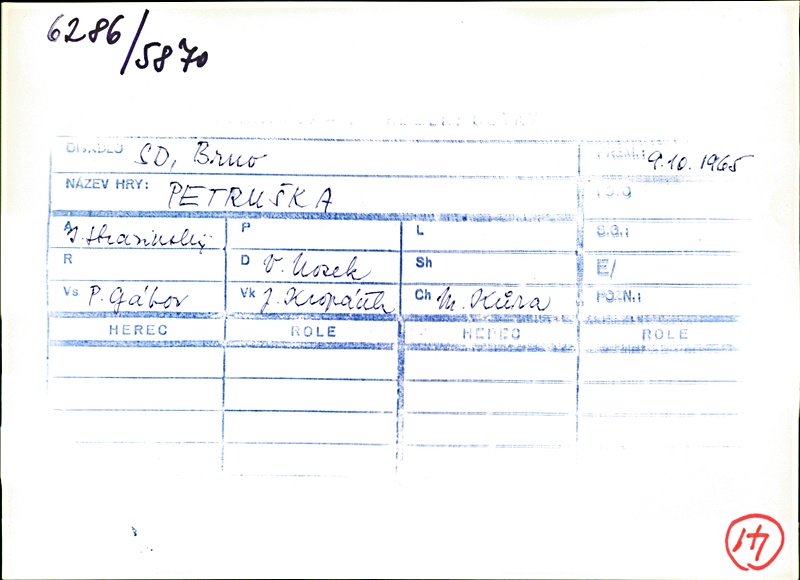 6286/5870
DIVADLO SD, Brno PREM.: 9.10.1965
NÁZEV HRY: PETRUŠKA
A I. Stravinskij P L S.G.:
R D V. Nosek Sh E/
Vs P. Gábor Vk J. Kropáček Ch M. Kůra POZN.:
HEREC ROLE HEREC ROLE
41